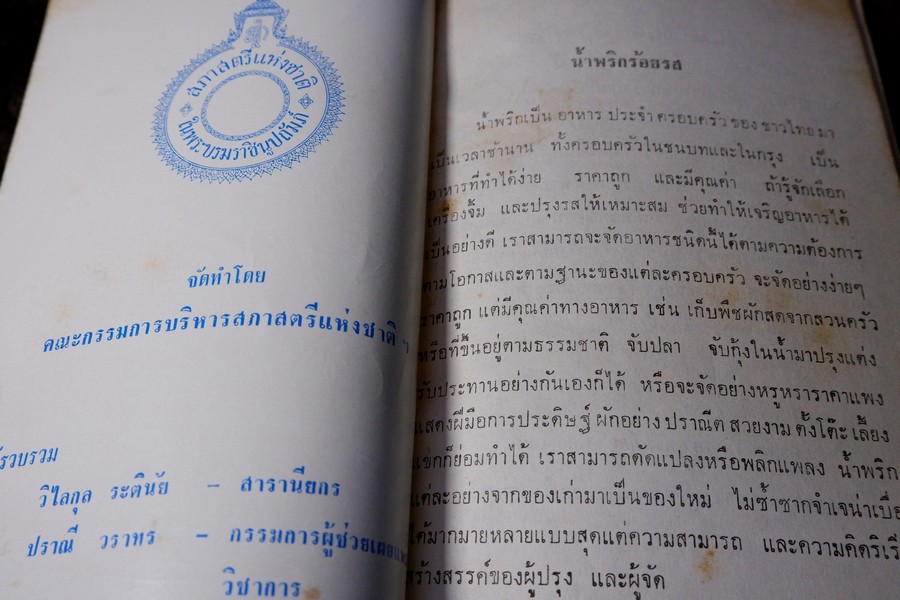 สภาสตรีแห่งชาติ
ในพระบรมราชินูปถัมภ์
จัดทำโดย
คณะกรรมการบริหารสภาสตรีแห่งชาติ ฯ
รวบรวม
วิไลกุล ระตินัย - สารานียกร
ปราณี วราทร - กรรมการผู้ช่วยเผยแ
วิชาการ
น้ำพริกร้อยรส
น้ำพริกเป็น อาหาร ประจำ ครอบครัว ของ ชาวไทย มา
เป็นเวลาช้านาน ทั้งครอบครัวในชนบทและในกรุง เป็น
อาหารที่ทำได้ง่าย ราคาถูก และมีคุณค่า ถ้ารู้จักเลือก
เครื่องจิ้ม และปรุงรสให้เหมาะสม ช่วยทำให้เจริญอาหารได้
เป็นอย่างดี เราสามารถจะจัดอาหารชนิดนี้ได้ตามความต้องการ
ตามโอกาสและตามฐานะของแต่ละครอบครัว จะจัดอย่างง่ายๆ
ราคาถูก แต่มีคุณค่าทางอาหาร เช่น เก็บพืชผักสดจากสวนครัว
หรือที่ขึ้นอยู่ตามธรรมชาติ จับปลา จับกุ้งในน้ำมาปรุงแต่ง
รับประทานอย่างกันเองก็ได้ หรือจะจัดอย่างหรูหราราคาแพง
แสดงฝีมือการประดิษฐ์ ผักอย่าง ปราณีต สวยงาม ตั้งโต๊ะ เลี้ยง
แขกก็ย่อมทำได้ เราสามารถดัดแปลงหรือพลิกแพลง น้ำพริก
แต่ละอย่างจากของเก่ามาเป็นของใหม่ ไม่ซ้ำซากจำเจน่าเบื่อ
ได้มากมายหลายแบบสุดแต่ความสามารถ และความคิดริเริ
สร้างสรรค์ของผู้ปรุง และผู้จัด